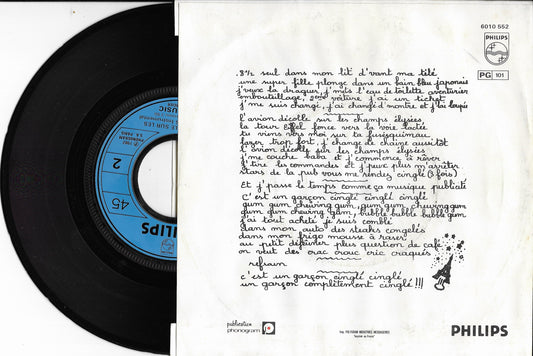 6010 552
PHILIPS
PG 101
3h¼ seul dans mon lit d'vant ma télé
une super fille plonge dans un bain bleu japonais
j'veux la draguer, j'mets l'eau de toilette aventurier
embouteillage, 2ème voiture j'ai un ticket
j'me suis changé, j'ai changé d'montre et j'l'ai loupés
l'avion décolle sur les champs élysées
la tour Eiffel fonce vers la voie lactée
tu viens vers moi sur ta
forcer trop fort, j'change de chaîne aussitôt
l'avion décolle sur les champs élysées
j'me couche baba et j'commence à rêver
d'tire les commandes et j'peux plus m'arrêter
stars de la pub vous me rendez cinglé (3 fois)
Et j'passe le temps comme ça musique publicité
c'est un garçon cinglé cinglé cinglé
gum gum chewing gum, gum gum, chewing gum
gum gum chewing gum, bubble bubble bubble gum
j'ai tout acheté je suis comblé
dans mon auto des steaks congelés
dans mon frigo mousse à raser
au petit déjeuner plus question de café
on veut des crac crouc cric craqués
refrain
c'est un garçon cinglé cinglé
un garçon complètement cinglé!!!
LE SUR LES
MUSIC
2
45
PHILIPS
publication
phonogram
PHILIPS